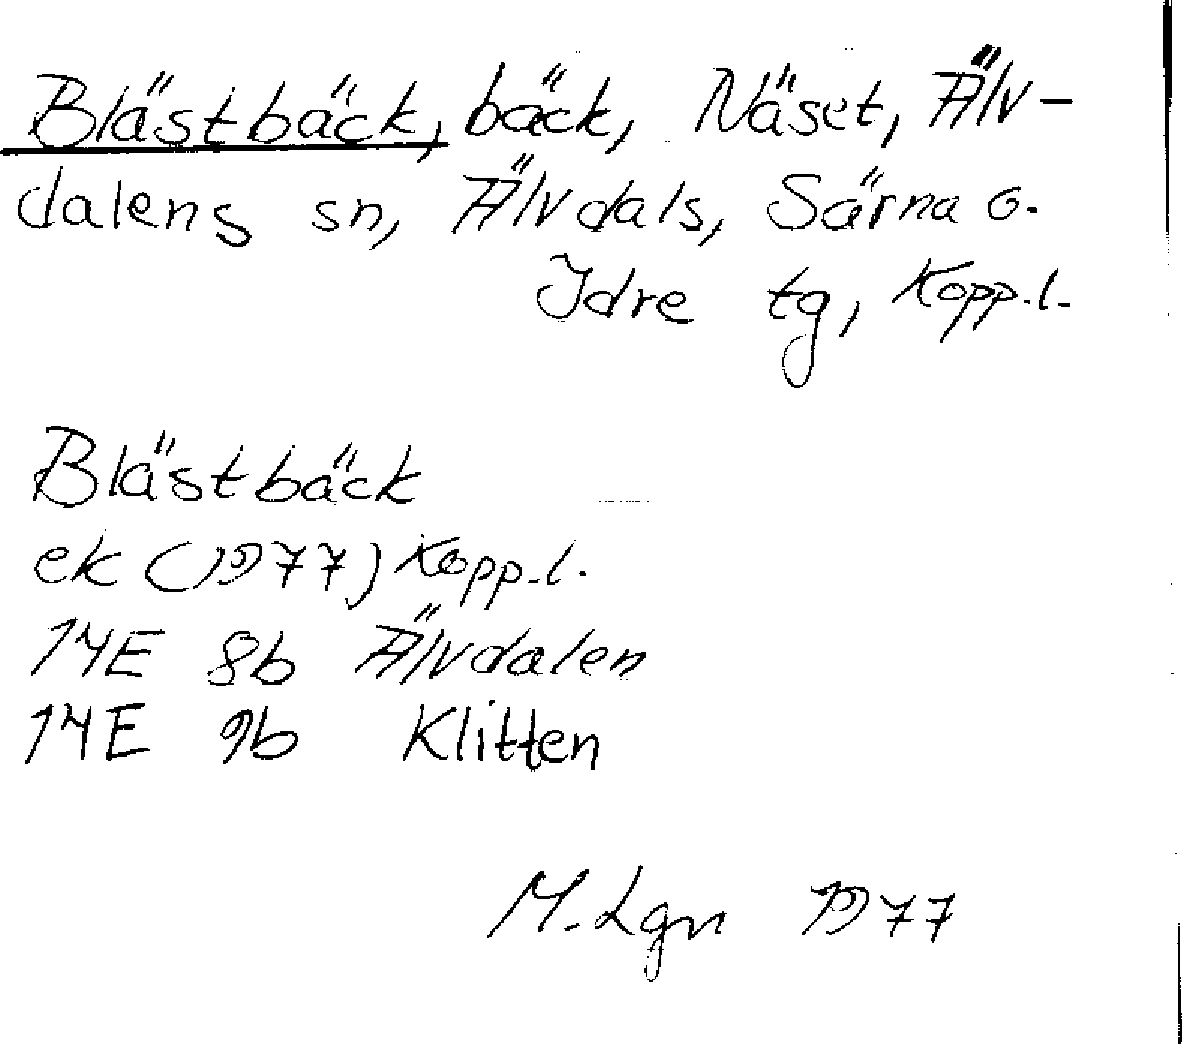 Blästbäck, bäck, Näset, Älv-
dalens sn, Älvdals, Särna o.
Idre tg, Kopp.l.
Blästbäck
ek (1977) Kopp.l.
14E 8b Älvdalen
14E 9b Klitten
M. Lgn 1977